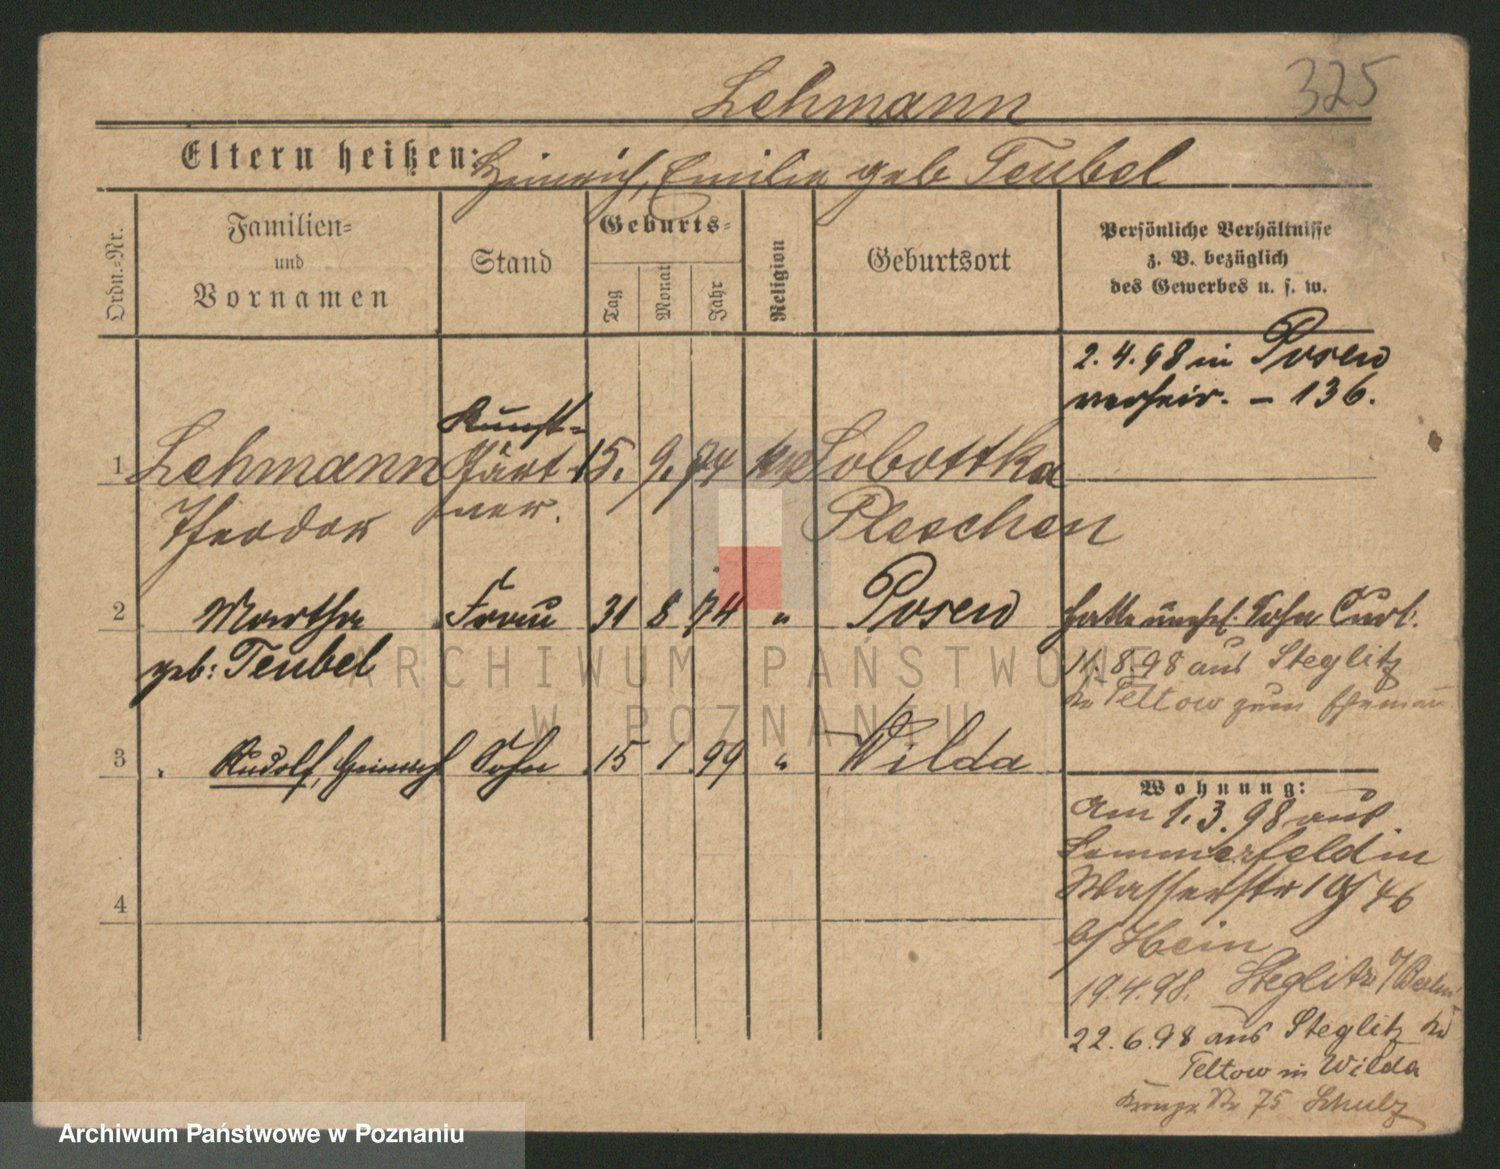 325
Lehmann
Eltern heißen: Heinrich, Emilie geb Teubel
Ordn.-Nr.
Familien-
und
Vornamen
Stand
Geburts-
Tag
Monat
Jahr
Religion
Geburtsort
Persönliche Verhältnisse
z. B. bezüglich
des Gewerbes u. s. w.
2. 4. 98 in Posen
verheir. - 136.
1 Lehmann Kunst- 15. 9. 74 Sobottka
Theodor Gärt-ner. Pleschen
2 Martha Frau 31 8 74 " Posen
geb: Teubel
hatte unehel. Sohn Curt.
11. 8. 98 aus Steglitz
Kr Teltow zum Ehemann
3 Rudolf, Heinrich Sohn 15 1 99 " Wilda
4
Wohnung:
Am 1. 3. 98 aus
Sommerfeld in
Wasserstr
b/ Hein
19. 4. 98. Steglitz b/ Berlin
22. 6. 98 aus Steglitz Kr
Teltow in Wilda
75 Schulz
ARCHIWUM PAŃSTWOWE
W POZNANIU
Archiwum Państwowe w Poznaniu